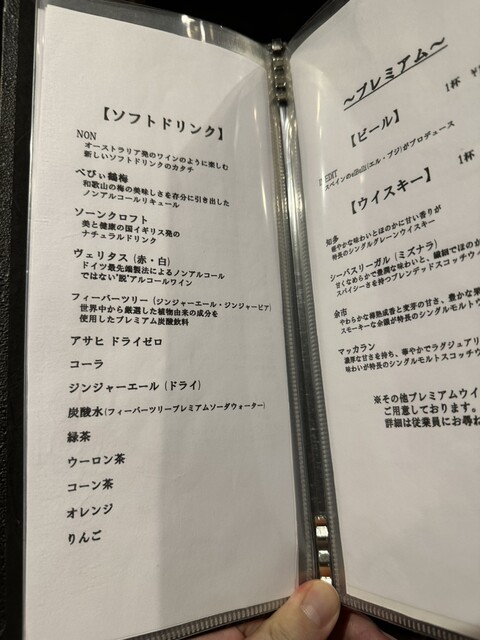 【ソフトドリンク】
NON
オーストラリア発のワインのように楽しむ
新しいソフトドリンクのカタチ
べびぃ鶴梅
和歌山の梅の美味しさを存分に引き出した
ノンアルコールリキュール
ソーンクロフト
美と健康の国イギリス発の
ナチュラルドリンク
ヴェリタス (赤・白)
ドイツ最先端製法によるノンアルコール
ではない"脱"アルコールワイン
フィーバーツリー (ジンジャーエール・ジンジャービア)
世界中から厳選した植物由来の成分を
使用したプレミアム炭酸飲料
アサヒ ドライゼロ
コーラ
ジンジャーエール (ドライ)
炭酸水(フィーバーツリープレミアムソーダウォーター)
緑茶
ウーロン茶
コーン茶
オレンジ
りんご
～プレミアム～
【ビール】 1杯
スペインのelBulli(エル・ブジ)がプロデュース
【ウイスキー】 1杯
知多
華やかな味わいとほのかに甘い香りが
特長のシングルグレーンウイスキー
シーバスリーガル (ミズナラ)
甘くなめらかで豊潤な味わいと、繊細でほのか
スパイシーさを持つブレンデッドスコッチウィ
余市
やわらかな樽熟成香と麦芽の甘さ、豊かな果
スモーキーな余韻が特長のシングルモルトウ
マッカラン
濃厚な甘さを持ち、華やかでラグジュアリ
味わいが特長のシングルモルトスコッチウ
※その他プレミアムウイ
ご用意しております。
詳細は従業員にお尋ね